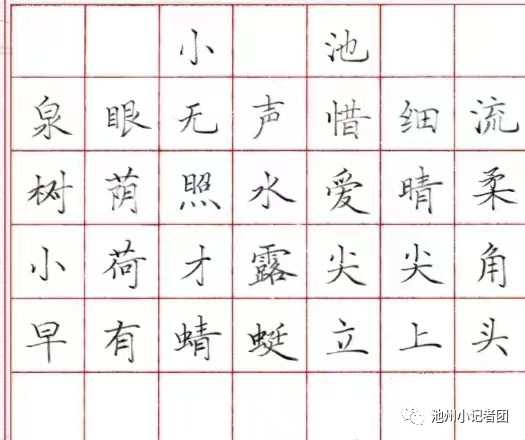 小池
泉眼无声惜细流
树荫照水爱晴柔
小荷才露尖尖角
早有蜻蜓立上头
池州小记者团